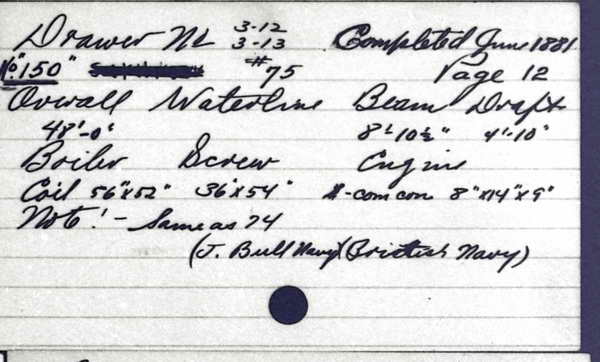 Drawer No 3-12 Completed June 1881
3-13
No 150" #75 Page 12
Overall Waterline Beam Draft
48'-0" 8'-10½" 4'-10"
Boiler Screw Engine
Coil 56"x52" 36"x54" com con 8"x14"x9"
Note! - Same as 74
(J. Bull Navy) (British Navy)